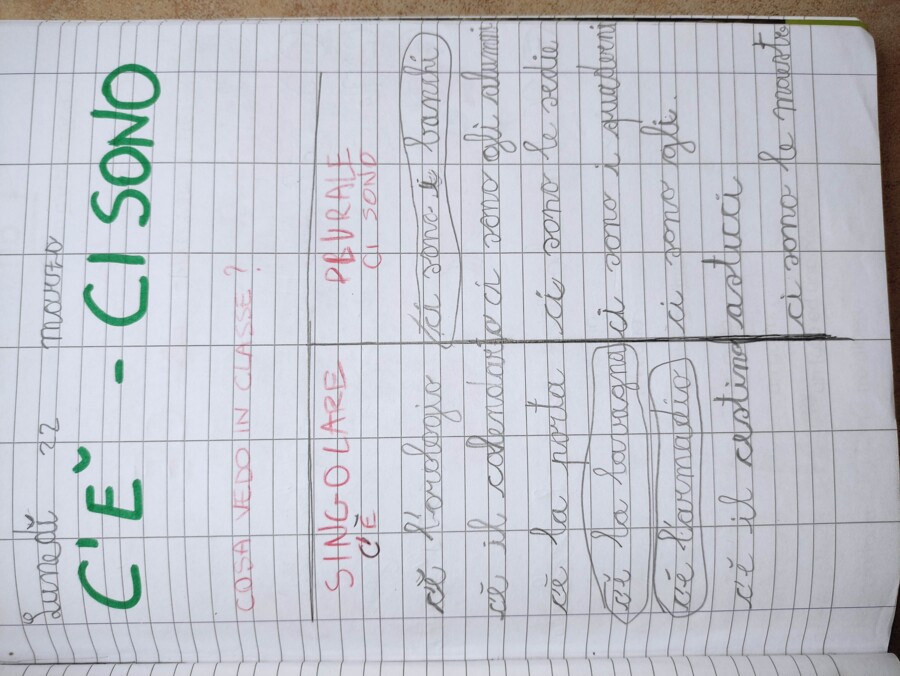 Lunedì 22 marzo
C'È - CI SONO
COSA VEDO IN CLASSE?
SINGOLARE PLURALE
C'È CI SONO
c'è l'orologio ci sono i banchi
c'è il calendario ci sono gli alunni
c'è la porta ci sono le sedie
c'è la lavagna ci sono i quaderni
c'è l'armadio ci sono gli.
c'è il cestino astucci
ci sono le maestre